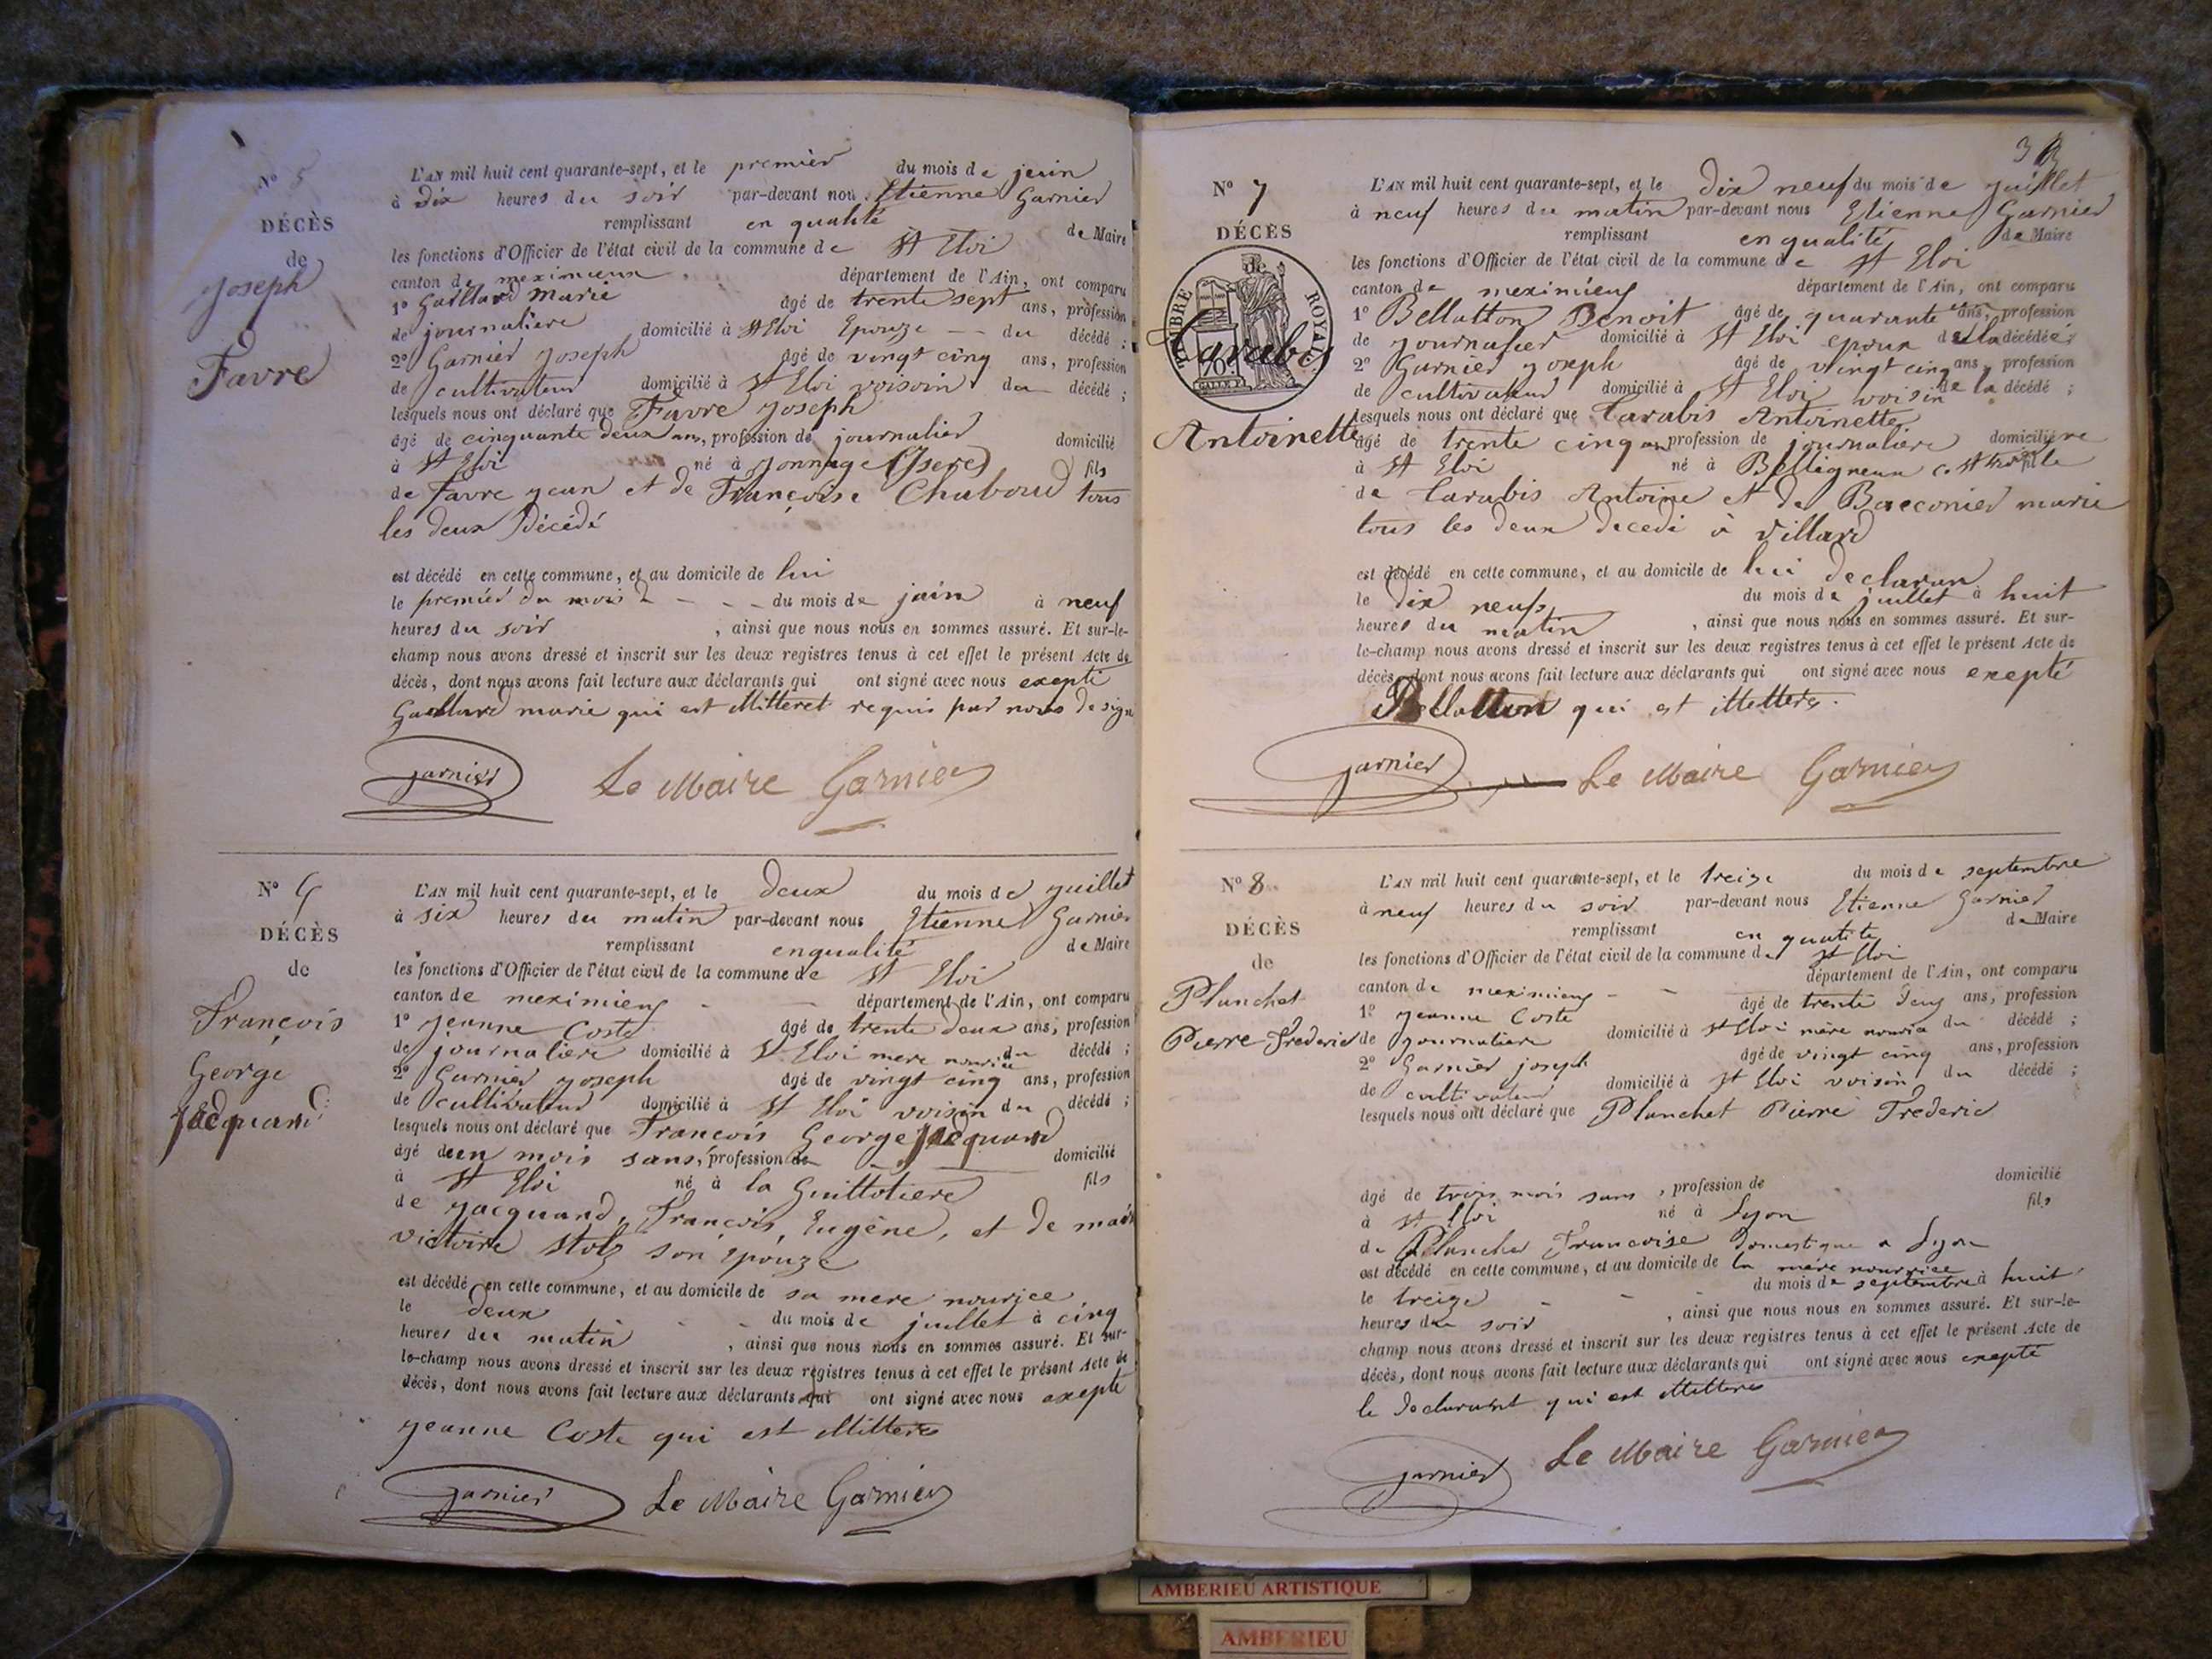 N° 5
DÉCÈS
de
Joseph
Favre
L'AN mil huit cent quarante-sept, et le premier du mois de juin
à Dix heures du soir par-devant nous Etienne Garnier
remplissant en qualité de Maire
les fonctions d'Officier de l'état civil de la commune de St Eloi
canton de meximieux département de l'Ain, ont comparu
1° Gaillard marie âgé de trente sept ans, profession
de journaliere domicilié à St Eloi Epouze du décédé ;
2° Garnier Joseph âgé de vingt cinq ans, profession
de cultivateur domicilié à St Eloi voisoin du décédé ;
lesquels nous ont déclaré que Favre Joseph
âgé de cinquante deux ans, profession de journalier domicilié
à St Eloi né à Jonnage (Isere) fils
de Favre jean et de Françoise Chaboud tous
les deux Décédé
est décédé en cette commune, et au domicile de lui
le premier du mois du mois de juin à neuf
heures du soir , ainsi que nous nous en sommes assuré. Et sur-le-
champ nous avons dressé et inscrit sur les deux registres tenus à cet effet le présent Acte de
décès, dont nous avons fait lecture aux déclarants qui ont signé avec nous exepti
Gaillard marie qui est illitteret requis par nous de signe
Garnier Le Maire Garnier
N°
DÉCÈS
de
François
George
Jacquand
L'AN mil huit cent quarante-sept, et le deux du mois de juillet
à six heures du matin par-devant nous Etienne Garnier
remplissant enqualité de Maire
les fonctions d'Officier de l'état civil de la commune de St Eloi
canton de meximieux département de l'Ain, ont comparu
1° jeanne Coste âgé de trente deux ans, profession
de journaliere domicilié à St Eloi mere nourice du décédé ;
2° Garnier joseph âgé de vingt cinq ans, profession
de cultivateur domicilié à St Eloi voisin du décédé ;
lesquels nous ont déclaré que François George Jacquand
âgé de un mois sans, profession de domicilié
à St Eloi né à la Guillotiere fils
de jacquand, François, Eugène, et de marie
victoire Stolz son Epouze
est décédé en cette commune, et au domicile de sa mere nourice
le deux du mois de juillet à cinq
heures du matin , ainsi que nous nous en sommes assuré. Et sur-
le-champ nous avons dressé et inscrit sur les deux registres tenus à cet effet le présent Acte de
décès, dont nous avons fait lecture aux déclarants qui ont signé avec nous exepté
jeanne Coste qui est illittere
Garnier Le Maire Garnier
N° 7
DÉCÈS
de
TIMBRE ROYAL
Carabis
Antoinette
L'AN mil huit cent quarante-sept, et le dix neuf du mois de juillet
à neuf heures du matin par-devant nous Etienne Garnier
remplissant enqualité de Maire
les fonctions d'Officier de l'état civil de la commune de St Eloi
canton de meximieux département de l'Ain, ont comparu
1° Bellatton Benoit âgé de quarante un ans, profession
de journalier domicilié à St Eloi epoux de la décédée ;
2° Garnier joseph âgé de vingt cinq ans, profession
de cultivateur domicilié à St Eloi voisin de la décédé ;
lesquels nous ont déclaré que Carabis Antoinette
âgé de trente cinq ans profession de journaliere domiciliére
à St Eloi né à Belligneux fille
de Carabis Antoine et de Baeconier marie
tous les deux decedé à Villard
est décédé en cette commune, et au domicile de lui declaran
le dix neuf du mois de juillet à huit
heures du matin , ainsi que nous nous en sommes assuré. Et sur-
le-champ nous avons dressé et inscrit sur les deux registres tenus à cet effet le présent Acte de
décès, dont nous avons fait lecture aux déclarants qui ont signé avec nous exepté
Bellatton qui est illettere.
Garnier Le Maire Garnier
N° 8
DÉCÈS
de
Planchet
Pierre Frederic
L'AN mil huit cent quarante-sept, et le treize du mois de septembre
à neuf heures du soir par-devant nous Etienne Garnier
remplissant en qualité de Maire
les fonctions d'Officier de l'état civil de la commune de St Eloi
canton de meximieux département de l'Ain, ont comparu
1° jeanne Coste âgé de trente deux ans, profession
de journaliere domicilié à St Eloi mère nourice du décédé ;
2° Garnier joseph âgé de vingt cinq ans, profession
de cultivateur domicilié à St Eloi voisin du décédé ;
lesquels nous ont déclaré que Planchet Pierre Frederic
âgé de trois mois sans , profession de domicilié
à St Eloi né à Lyon fils
de Planchet Francoise Domestique a Lyon
est décédé en cette commune, et au domicile de la mère nourrice
le treize du mois de septembre à huit
heures du soir , ainsi que nous nous en sommes assuré. Et sur-le-
champ nous avons dressé et inscrit sur les deux registres tenus à cet effet le présent Acte de
décès, dont nous avons fait lecture aux déclarants qui ont signé avec nous exepté
le declarant qui est illittere
Garnier Le Maire Garnier
AMBERIEU ARTISTIQUE
AMBERIEU